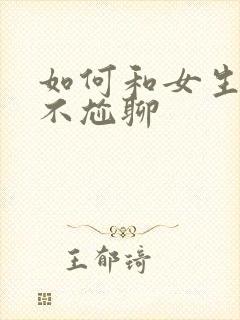 如何和女生
不尬聊
王郁琦